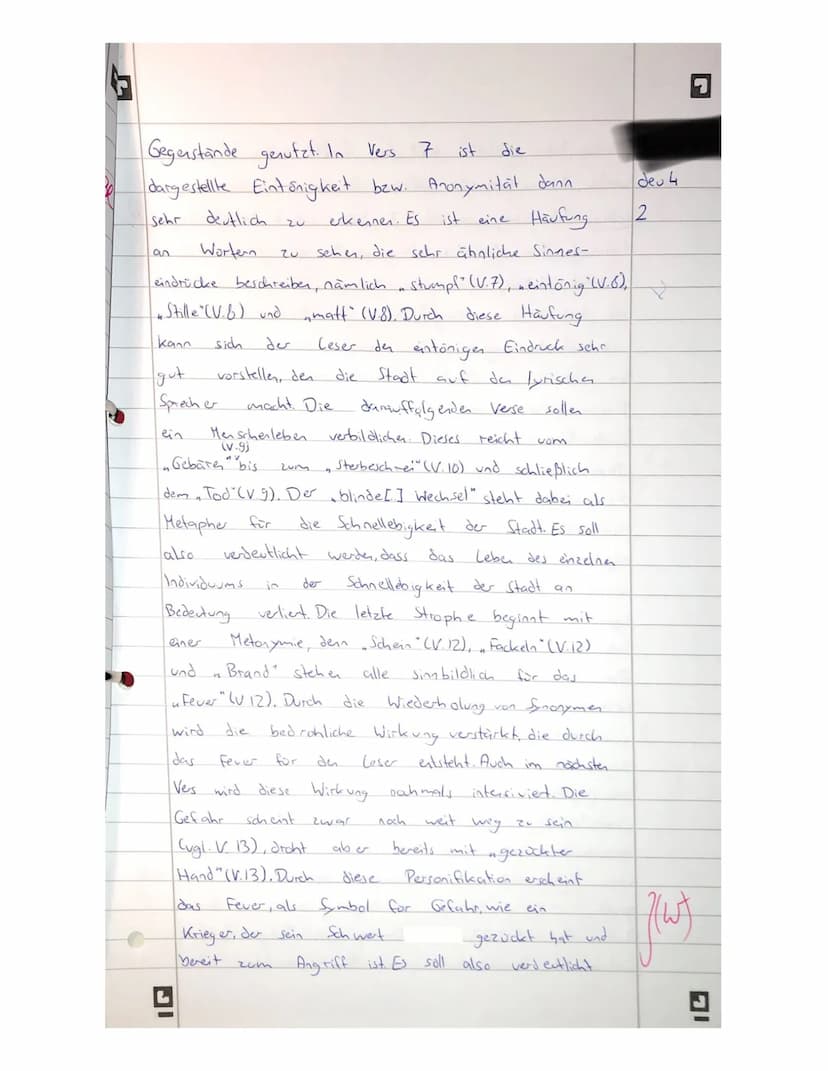 Gegenstände genutzt. In Vers 7 ist die
dargestellte Eintönigkeit bzw. Anonymität dann
deu 4
sehr deutlich zu erkennen. Es ist eine Häufung
2
an Wörtern zu sehen, die sehr ähnliche Sinnes-
eindrücke beschreiben, nämlich „stumpf" (V.7), „eintönig" (V.6),
„Stille" (V.6) und „matt" (V.8). Durch diese Häufung
kann sich der Leser den eintönigen Eindruck sehr
gut vorstellen, den die Stadt auf den lyrischen
Sprecher macht. Die darauffolgenden Verse sollen
ein Menschenleben verbildlichen. Dieses reicht vom
(V.9)
„Gebären" bis zum „Sterbeschrei" (V.10) und schließlich
dem „Tod" (V.9). Der „blinde[.] Wechsel" steht dabei als
Metapher für die Schnellebigkeit der Stadt. Es soll
also verdeutlicht werden, dass das Leben des einzelnen
Individuums in der Schnellebigkeit der Stadt an
Bedeutung verliert. Die letzte Strophe beginnt mit
einer Metonymie, denn „Schein" (V.12), „Fackeln" (V.12)
und „Brand" stehen alle sinnbildlich für das
„Feuer" (V.12). Durch die Wiederholung von Synonymen
wird die bedrohliche Wirkung verstärkt, die durch
das Feuer für den Leser entsteht. Auch im nächsten
Vers wird diese Wirkung nochmals intensiviert. Die
Gefahr scheint zwar noch weit weg zu sein
(vgl. V. 13), droht aber bereits mit „gezückter
Hand" (V.13). Durch diese Personifikation erscheint
das Feuer, als Symbol für Gefahr, wie ein
(W)
Krieger, der sein Schwert gezückt hat und
bereit zum Angriff ist. Es soll also verdeutlicht